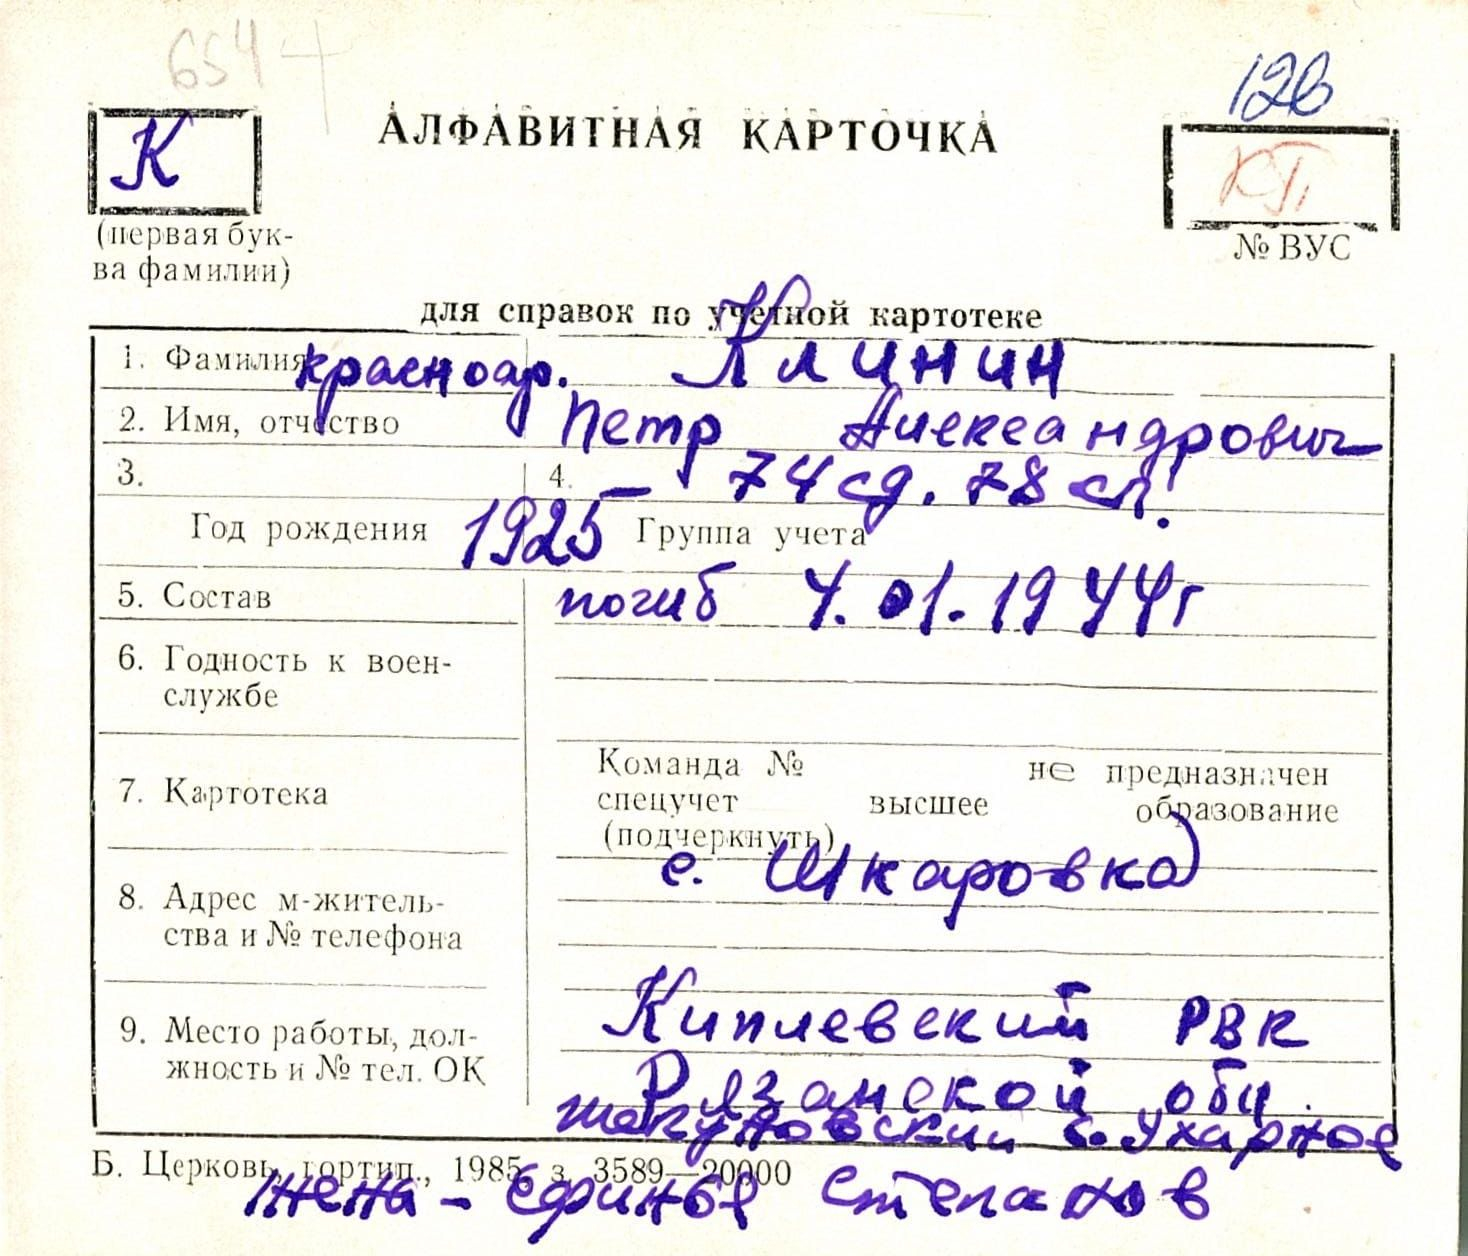 654
126
АЛФАВИТНАЯ КАРТОЧКА
К
КП
(первая бук-
ва фамилии)
№ ВУС
для справок по учетной картотеке
1. Фамилия красноар. Клинин
2. Имя, отчество Петр Александрович
3. 4. 74 сд. 78 сп.
Год рождения 1925 Группа учета
5. Состав погиб 4.01.1944г
6. Годность к воен-
службе
7. Картотека
Команда № не предназначен
спецучет высшее образование
(подчеркнуть)
с. Шкаровка
8. Адрес м-житель-
ства и № телефона
9. Место работы, дол-
жность и № тел. ОК
Киплевский РВК
Рязанской обл.
с. Ухарное
Б. Церковь, гортип., 1985 з. 3589—20000
жена -